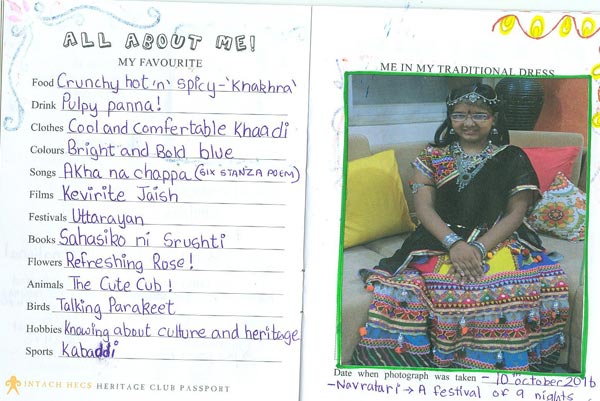 ALL ABOUT ME!
MY FAVOURITE
Food Crunchy hot 'n' spicy-'Khakhra'
Drink Pulpy panna!
Clothes Cool and comfertable Khaadi
Colours Bright and Bold blue
Songs Akha na chappa (SIX STANZA POEM)
Films Kevirite Jaish
Festivals Uttarayan
Books Sahasiko ni Srushti
Flowers Refreshing Rose!
Animals The Cute Cub!
Birds Talking Parakeet
Hobbies Knowing about culture and heritage
Sports Kabaddi
INTACH HECS HERITAGE CLUB PASSPORT
ME IN MY TRADITIONAL DRESS
Date when photograph was taken - 10th october 2016
-Navratari → A festival of 9 nights